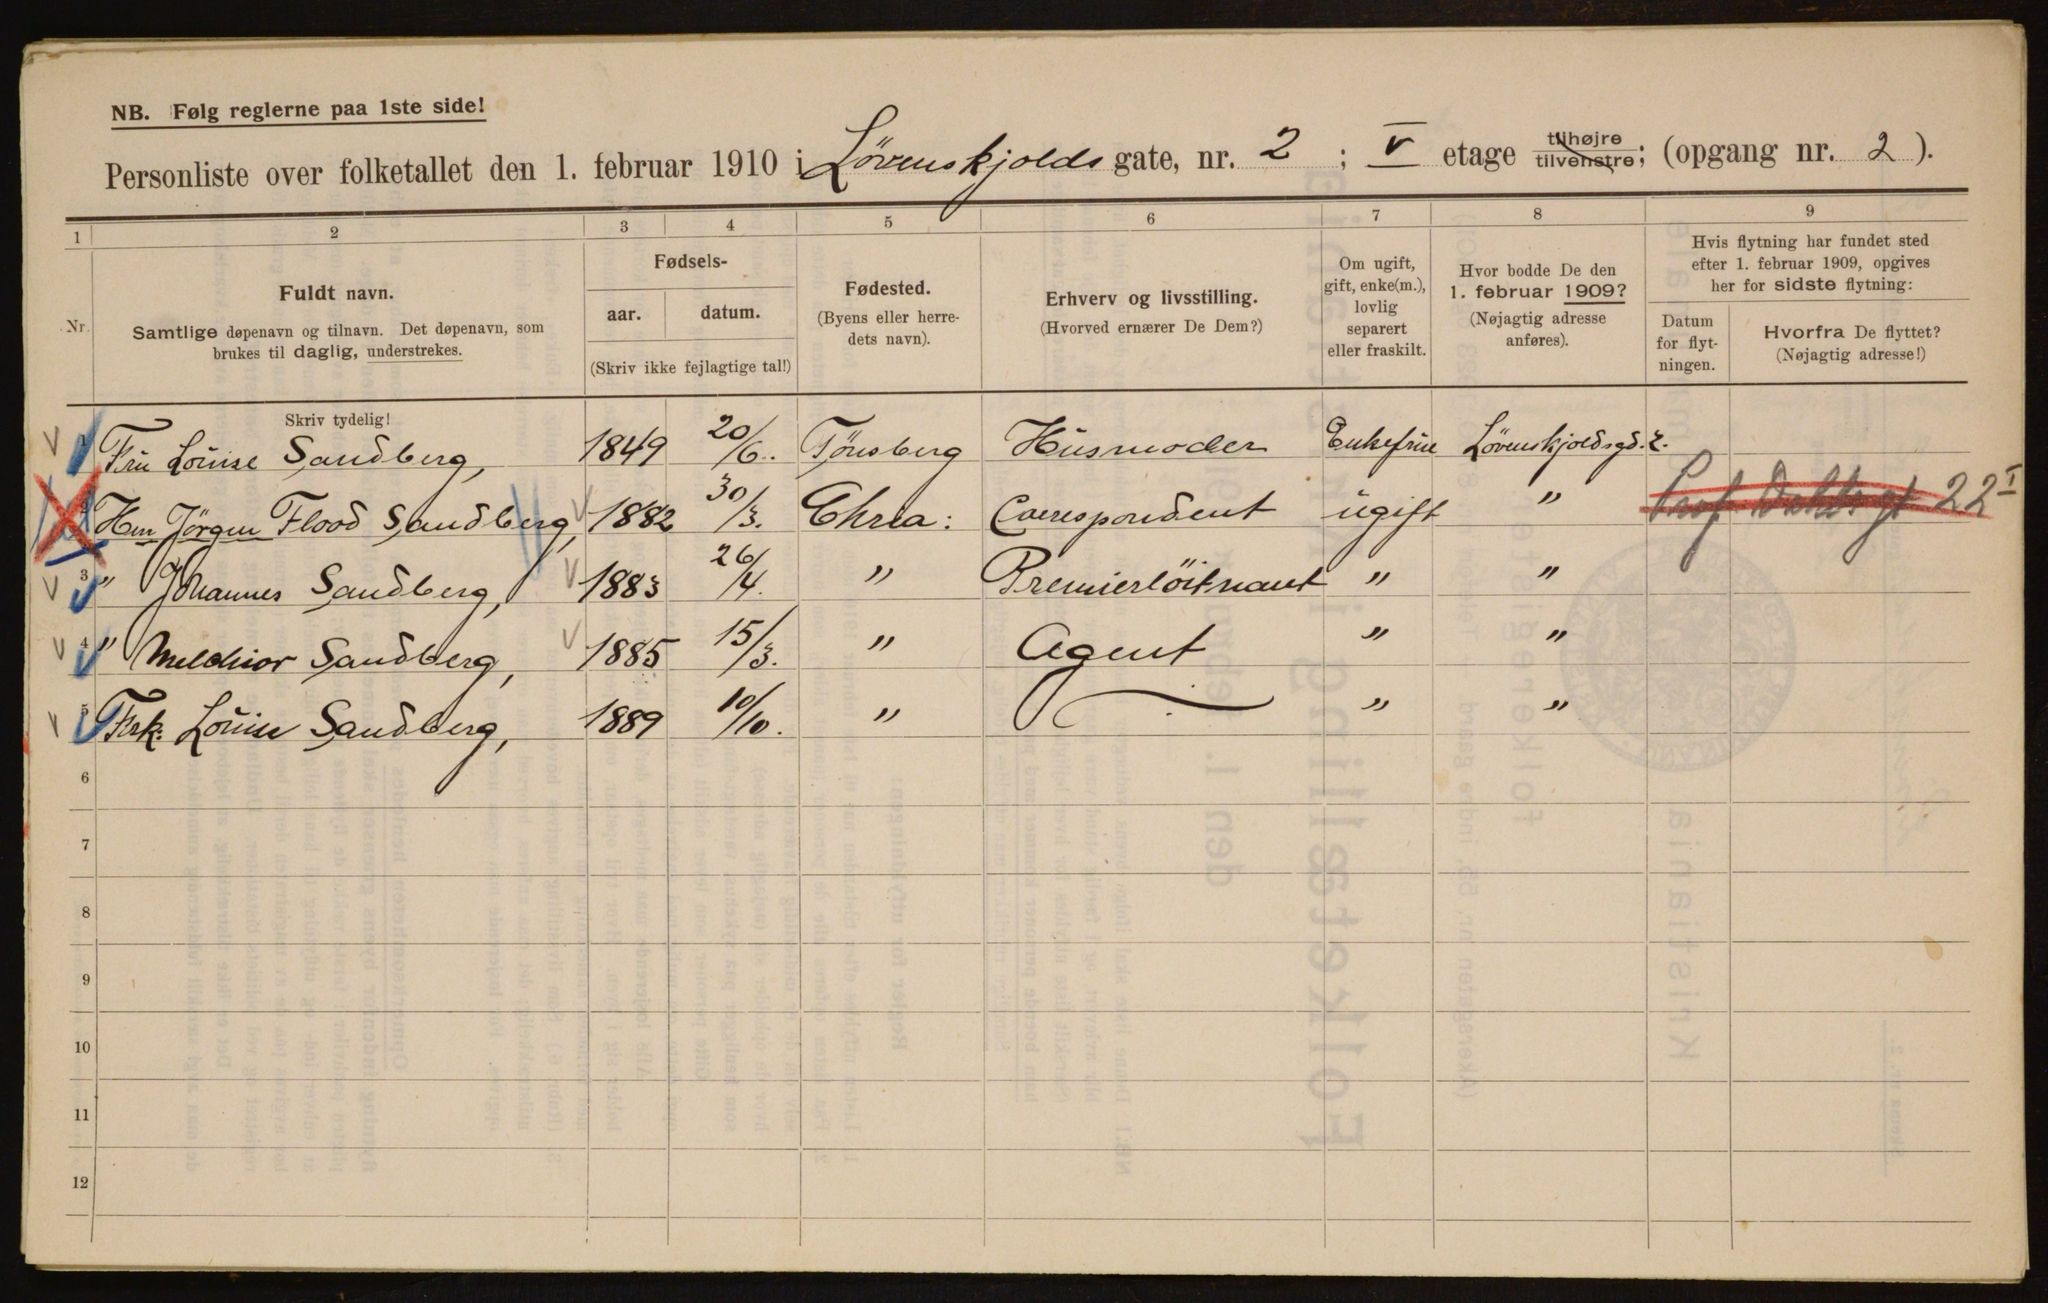 NB. Følg reglerne paa 1ste side!
Personliste over folketallet den 1. februar 1910 i Løvenskjolds gate, nr. 2 ; V etage tilhøjre tilvenstre; (opgang nr. 2 ).
1 2 3 4 5 6 7 8 9
Nr.
Fuldt navn.
Samtlige døpenavn og tilnavn. Det døpenavn, som
brukes til daglig, understrekes.
Fødsels-
aar. datum.
(Skriv ikke fejlagtige tal!)
Fødested.
(Byens eller herre-
dets navn).
Erhverv og livsstilling.
(Hvorved ernærer De Dem?)
Om ugift,
gift, enke(m.),
lovlig
separert
eller fraskilt.
Hvor bodde De den
1. februar 1909?
(Nøjagtig adresse
anføres).
Hvis flytning har fundet sted
efter 1. februar 1909, opgives
her for sidste flytning:
Datum
for flyt-
ningen.
Hvorfra De flyttet?
(Nøjagtig adresse!)
Skriv tydelig!
1 Fru Louise Sandberg, 1849 20/6. Tønsberg Husmoder Enkefrue Løvenskjoldsgd. 2.
2 Herr Jörgen Flood Sandberg, 1882 30/3. Chria: Correspondent ugift " Prof. Dahls gt 22 I
3 " Johannes Sandberg, 1883 26/4. " Premierløitnant " "
4 " Melchior Sandberg, 1885 15/3. " Agent " "
5 Frk: Louise Sandberg, 1889 10/10. " " "
6
7
8
9
10
11
12